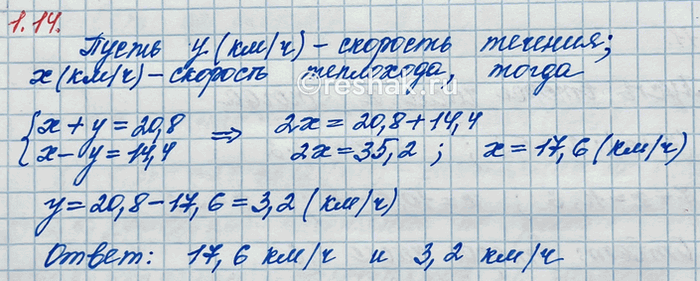 1.14.
Пусть y (км/ч) – скорость течения;
x (км/ч) – скорость теплохода, тогда
{x + y = 20,8 ⇒ 2x = 20,8 + 14,4
x – y = 14,4 2x = 35,2 ; x = 17,6 (км/ч)
y = 20,8 – 17,6 = 3,2 (км/ч)
Ответ: 17,6 км/ч и 3,2 км/ч
©reshak.ru